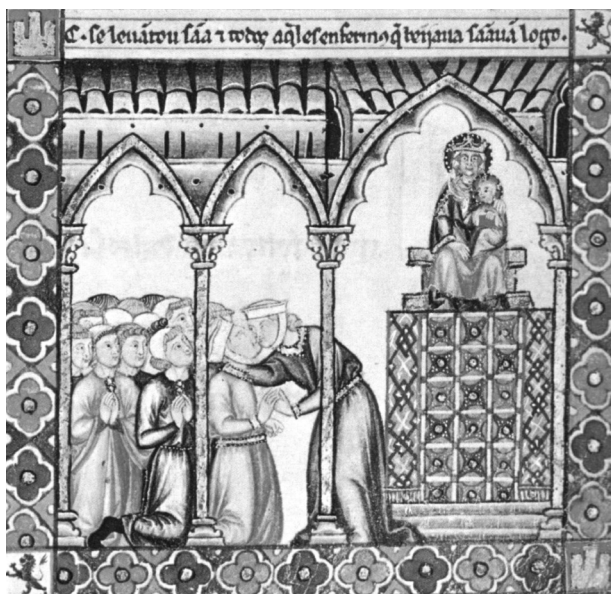 C. se leuãtou sãa ⁊ todos aq̃les enfermos q̃ beijaua sãauã logo.